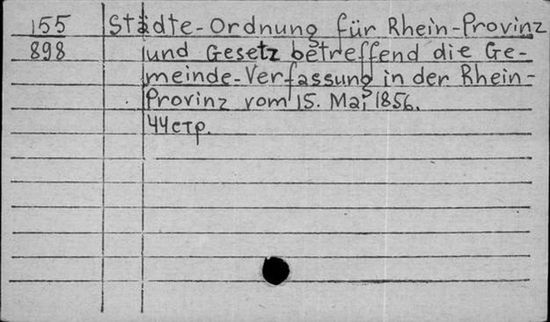 155 Städte-Ordnung für Rhein-Provinz
898 und Gesetz betreffend die Ge-
meinde-Verfassung in der Rhein-
Provinz vom 15. Mai 1856.
44 стр.